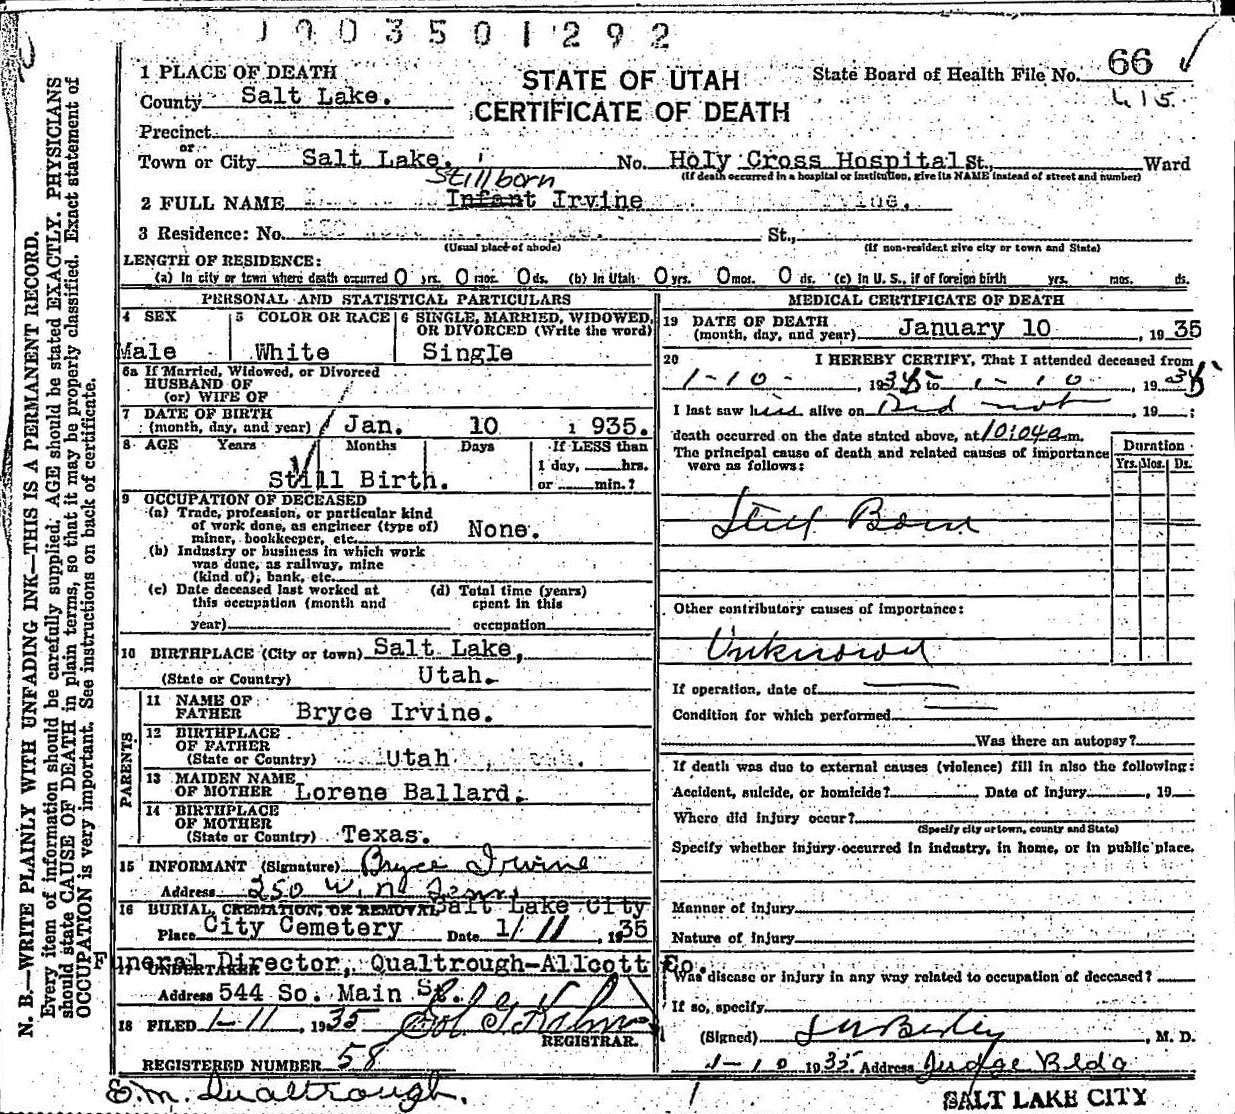 1003501292
STATE OF UTAH
CERTIFICATE OF DEATH
State Board of Health File No. 66
415
1 PLACE OF DEATH
County Salt Lake.
Precinct
or
Town or City Salt Lake. No. Holy Cross Hospital St., Ward
(If death occurred in a hospital or institution, give its NAME instead of street and number)
Stillborn
2 FULL NAME Infant Irvine
3 Residence: No. St.,
(Usual place of abode) (If non-resident give city or town and State)
LENGTH OF RESIDENCE:
(a) In city or town where death occurred 0 yrs. 0 mos. 0 ds. (b) In Utah 0 yrs. 0 mos. 0 ds. (c) In U. S., if of foreign birth yrs. mos. ds.
PERSONAL AND STATISTICAL PARTICULARS
4 SEX 5 COLOR OR RACE 6 SINGLE, MARRIED, WIDOWED,
OR DIVORCED (Write the word)
Male White Single
6a If Married, Widowed, or Divorced
HUSBAND OF
(or) WIFE OF
7 DATE OF BIRTH
(month, day, and year) Jan. 10 1935.
8 AGE Years Months Days If LESS than
1 day, hrs.
or min.?
Still Birth.
9 OCCUPATION OF DECEASED
(a) Trade, profession, or particular kind
of work done, as engineer (type of)
miner, bookkeeper, etc. None.
(b) Industry or business in which work
was done, as railway, mine
(kind of), bank, etc.
(c) Date deceased last worked at
this occupation (month and
year)
(d) Total time (years)
spent in this
occupation
10 BIRTHPLACE (City or town) Salt Lake,
(State or Country) Utah.
PARENTS
11 NAME OF
FATHER Bryce Irvine.
12 BIRTHPLACE
OF FATHER
(State or Country) Utah
13 MAIDEN NAME
OF MOTHER Lorene Ballard.
14 BIRTHPLACE
OF MOTHER
(State or Country) Texas.
15 INFORMANT (Signature) Bryce Irvine
Address 250 W. No. Temp.
16 BURIAL, CREMATION, OR REMOVAL Salt Lake City
Place City Cemetery Date 1/ 11, 1935
Funeral Director, Qualtrough-Allcott Co.
UNDERTAKER
Address 544 So. Main St.
18 FILED 1-11, 1935
REGISTRAR.
REGISTERED NUMBER 58
E.M. Qualtrough.
MEDICAL CERTIFICATE OF DEATH
19 DATE OF DEATH
(month, day, and year) January 10, 1935
20 I HEREBY CERTIFY, That I attended deceased from
1-10-, 1935 to 1-10, 1935
I last saw him alive on Did not, 19 ;
death occurred on the date stated above, at 10:04a m.
The principal cause of death and related causes of importance
were as follows:
Duration
Yrs. Mos. Ds.
Still Born
Other contributory causes of importance:
Unknown
If operation, date of
Condition for which performed
Was there an autopsy?
If death was due to external causes (violence) fill in also the following:
Accident, suicide, or homicide? Date of injury , 19
Where did injury occur?
(Specify city or town, county and State)
Specify whether injury occurred in industry, in home, or in public place.
Manner of injury
Nature of injury
Was disease or injury in any way related to occupation of deceased?
If so, specify
(Signed) , M. D.
1-10 1935 Address Judge Bldg
SALT LAKE CITY
N. B.—WRITE PLAINLY WITH UNFADING INK—THIS IS A PERMANENT RECORD.
Every item of information should be carefully supplied. AGE should be stated EXACTLY. PHYSICIANS
should state CAUSE OF DEATH in plain terms, so that it may be properly classified. Exact statement of
OCCUPATION is very important. See instructions on back of certificate.